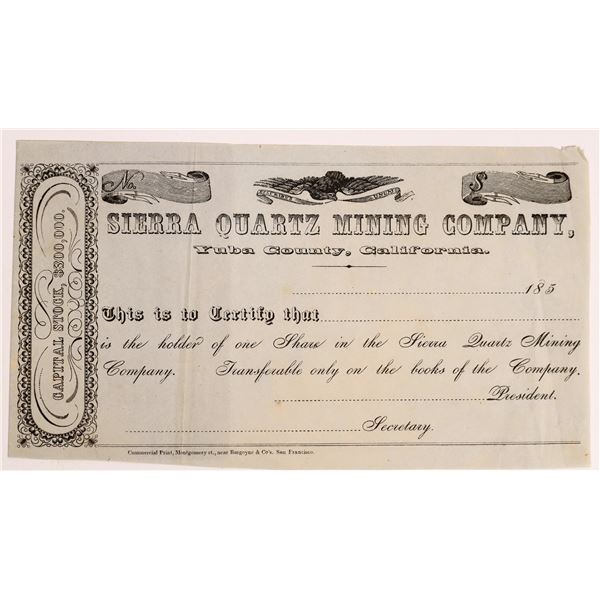 No.
E PLURIBUS UNUM
$
SIERRA QUARTZ MINING COMPANY,
Yuba County, California.
185
This is to Certify that
is the holder of one Share in the Sierra Quartz Mining
Company. Transferable only on the books of the Company.
President.
Secretary.
Commercial Print, Montgomery st., near Burgoyne & Co's. San Francisco.
CAPITAL STOCK, $300,000,